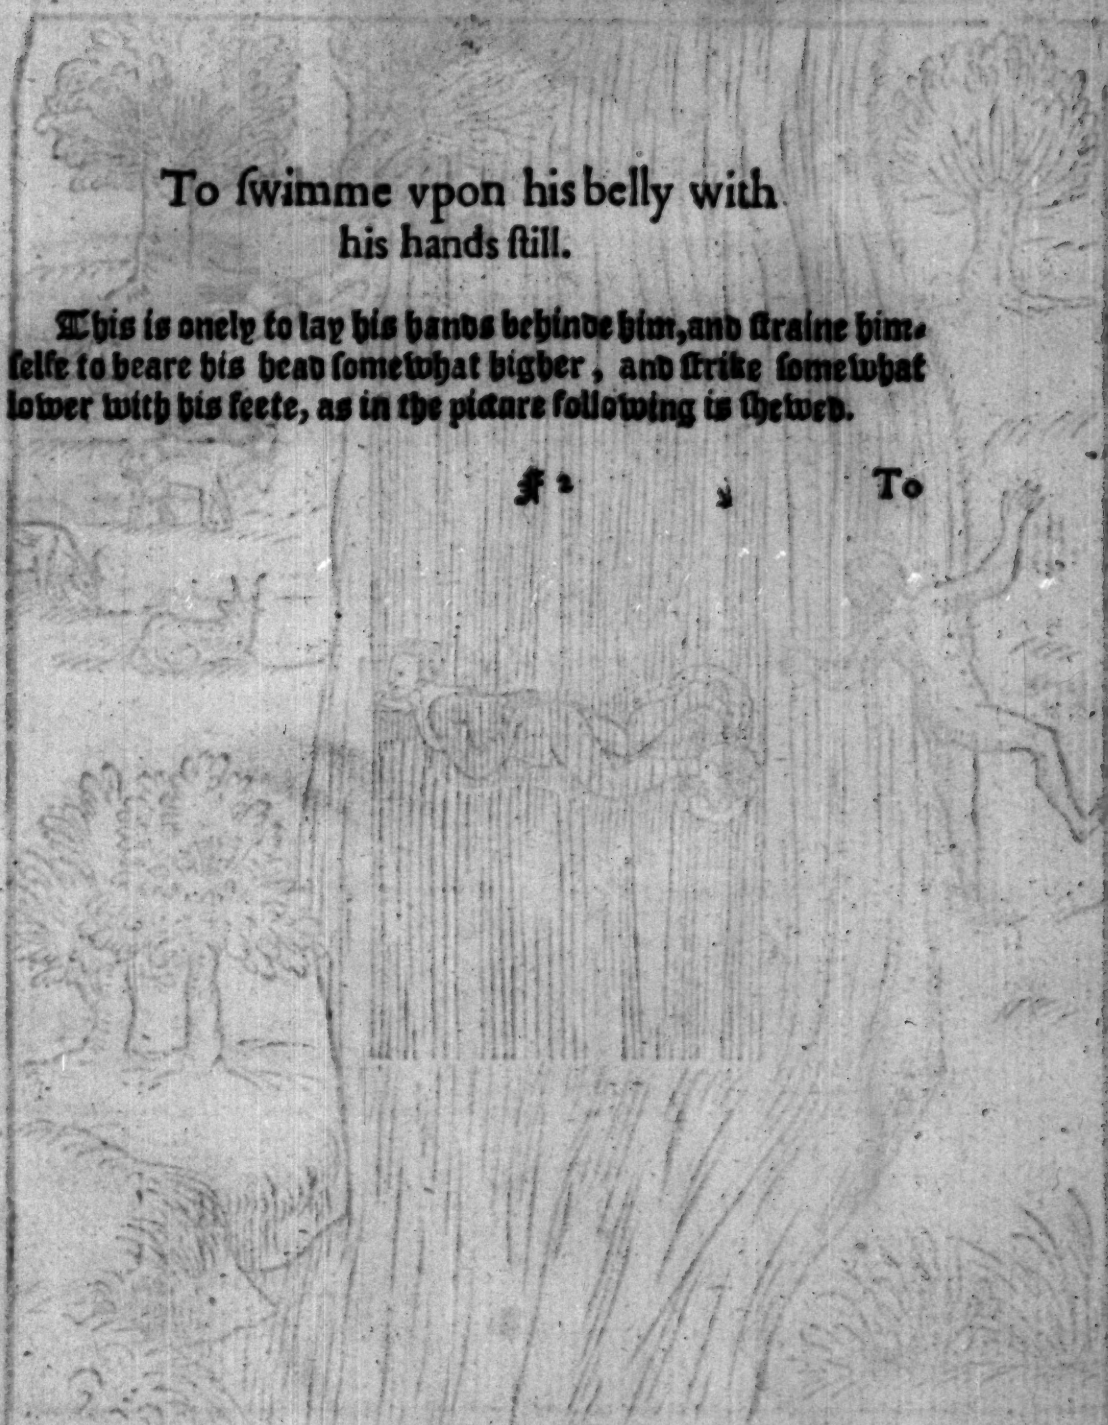 To ſwimme vpon his belly with
his hands ſtill.
This is onely to lay his hands behinde him, and ſtraine him-
ſelfe to beare his head ſomewhat higher, and ſtrike ſomewhat
lower with his feete, as in the picture following is ſhewed.
F 2 To